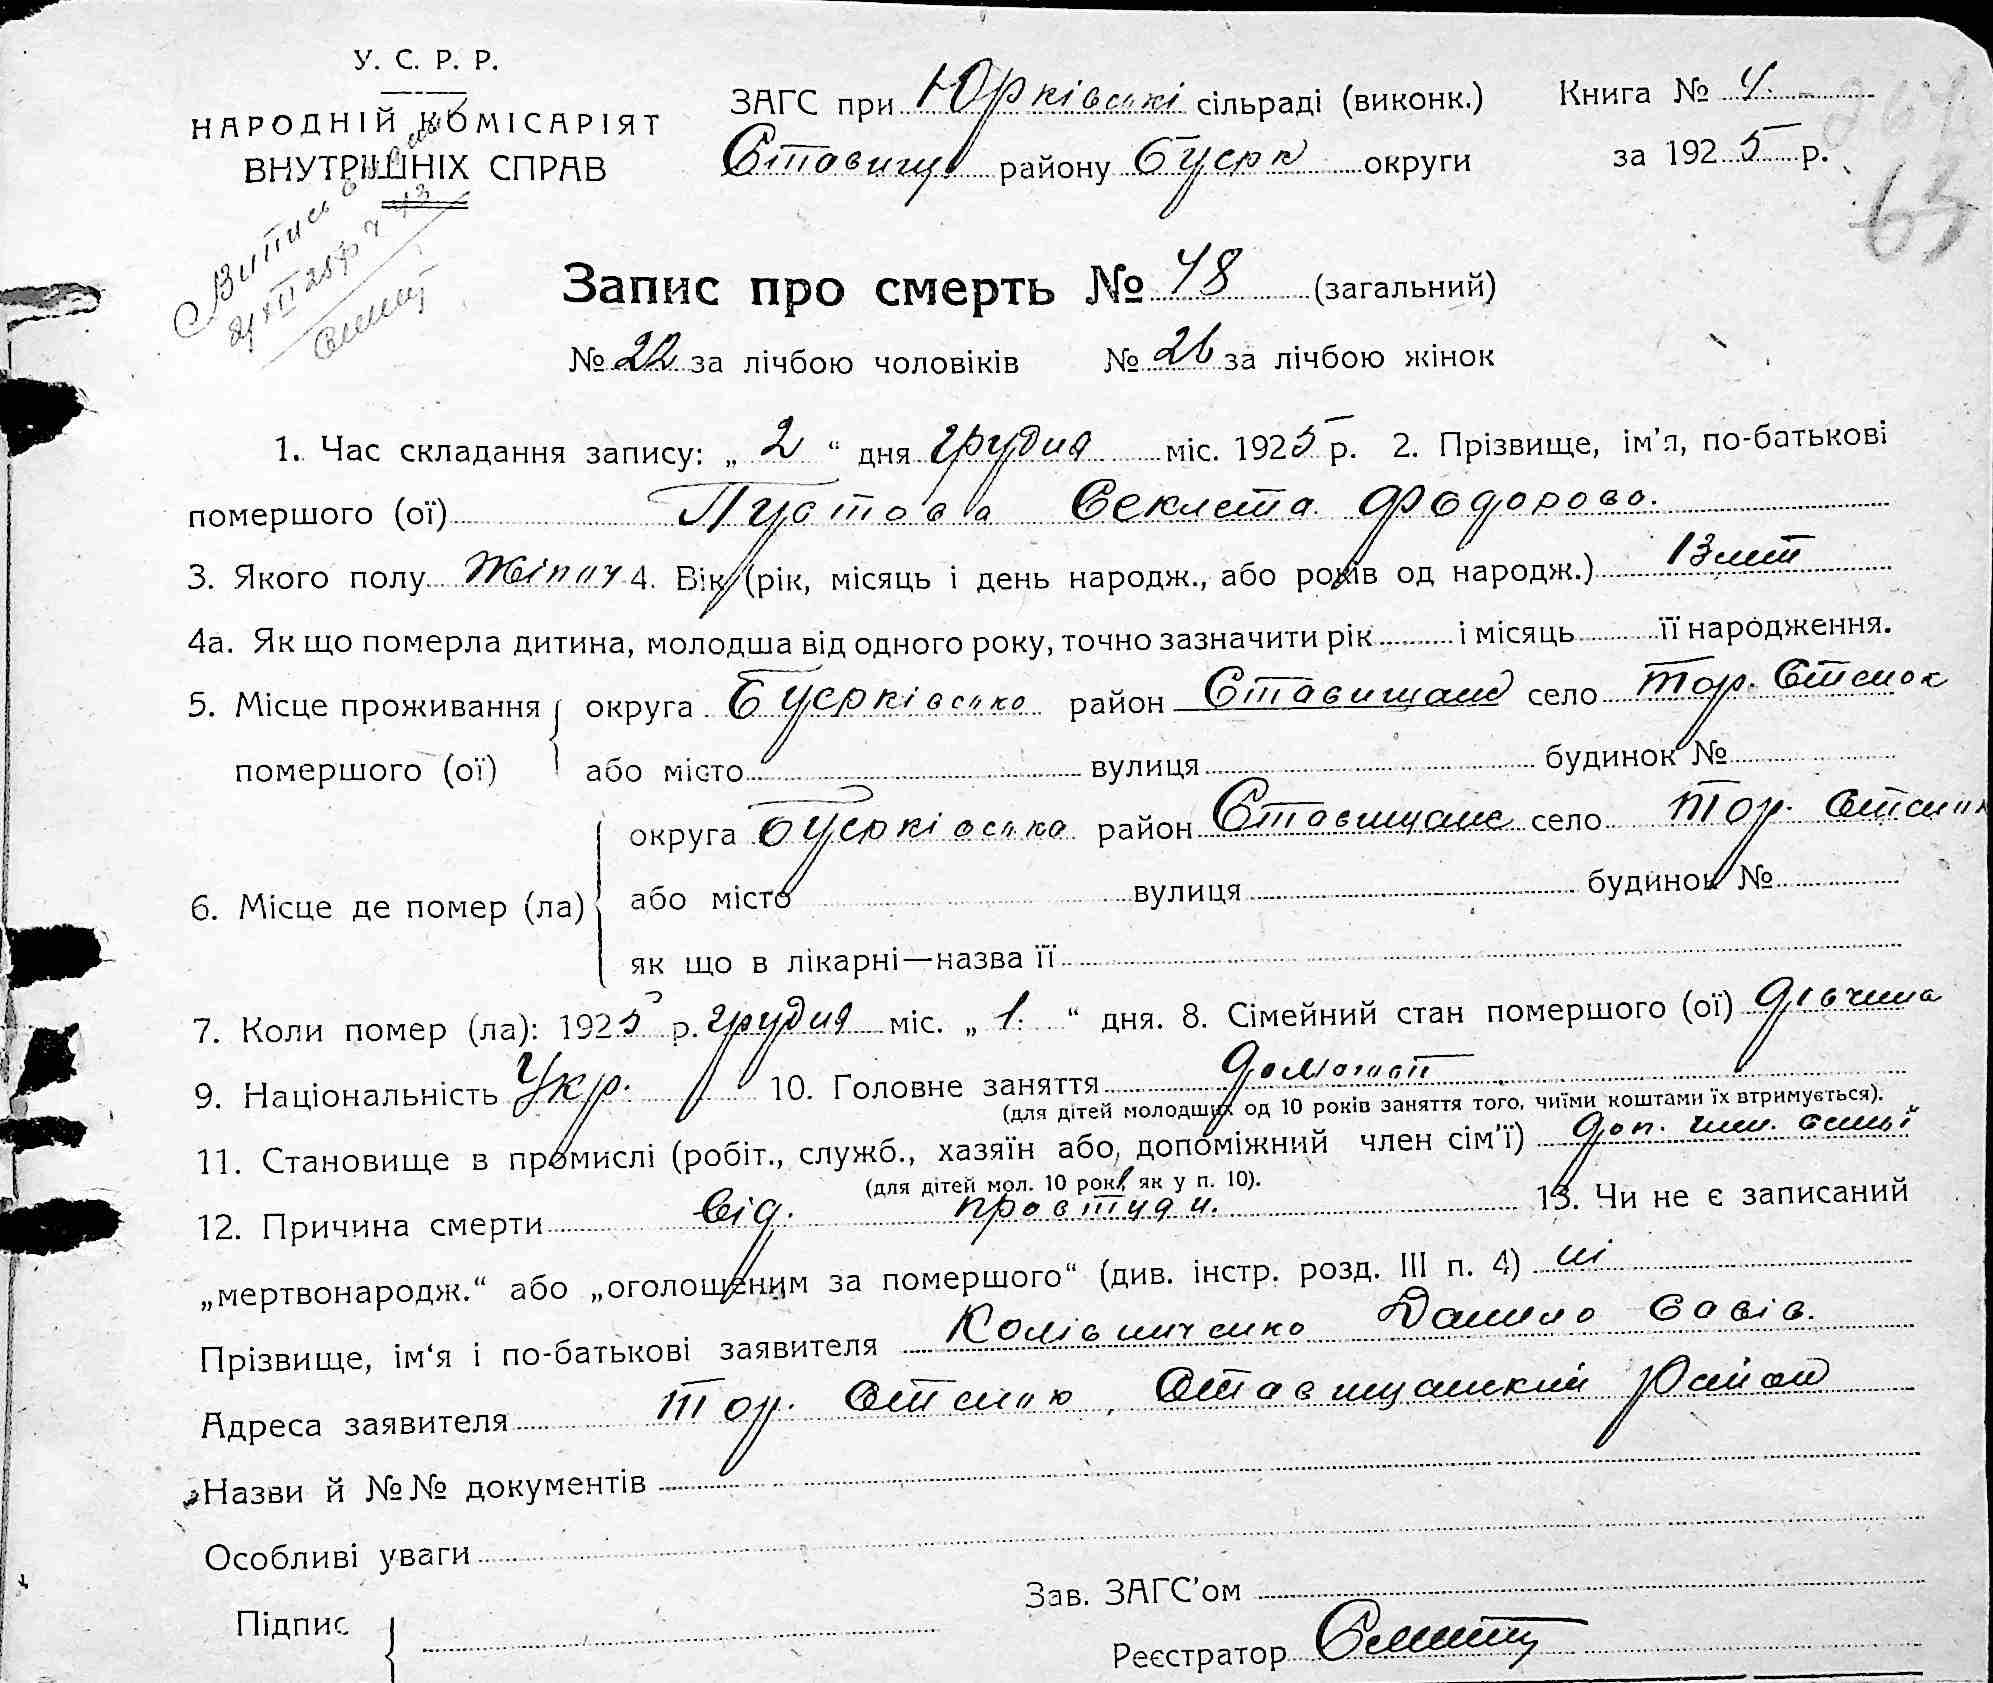 У. С. Р. Р.
НАРОДНІЙ КОМІСАРІЯТ
ВНУТРІШНІХ СПРАВ
ЗАГС при Юрківські сільраді (виконк.)
Ставищ району Буцрк округи
Книга № 4.
за 1925 р.
63
Витпись
Запис про смерть № 48 (загальний)
№ 22 за лічбою чоловіків № 26 за лічбою жінок
1. Час складання запису: „ 2 “ дня грудня міс. 1925 р. 2. Прізвище, ім'я, по-батькові
помершого (ої) Пустова Секлета Федорова.
3. Якого полу жіноч 4. Вік (рік, місяць і день народж., або років од народж.) 13 лит
4а. Як що померла дитина, молодша від одного року, точно зазначити рік і місяць її народження.
5. Місце проживання округа Буцрківсько район Ставищанс село Тор. Степок
помершого (ої) або місто вулиця будинок №
округа Буцрківсько район Ставищанс село Тор. Степок
6. Місце де помер (ла) або місто вулиця будинок №
як що в лікарні—назва її
7. Коли помер (ла): 1925 р. грудня міс. „ 1. “ дня. 8. Сімейний стан помершого (ої) дівчина
9. Національність Укр. 10. Головне заняття
(для дітей молодших од 10 років заняття того, чиїми коштами їх втримується).
11. Становище в промислі (робіт., служб., хазяїн або, допоміжний член сім'ї) доп. член. семьї
(для дітей мол. 10 рокі, як у п. 10).
12. Причина смерти від. простуди. 13. Чи не є записаний
„мертвонародж.“ або „оголошеним за помершого“ (див. інстр. розд. III п. 4) ні
Прізвище, ім‘я і по-батькові заявителя Колівниченко Данило Савів.
Адреса заявителя Тор. Степок, Ставищанский Район
Назви й №№ документів
Особливі уваги
Зав. ЗАГС'ом
Підпис
Реєстратор